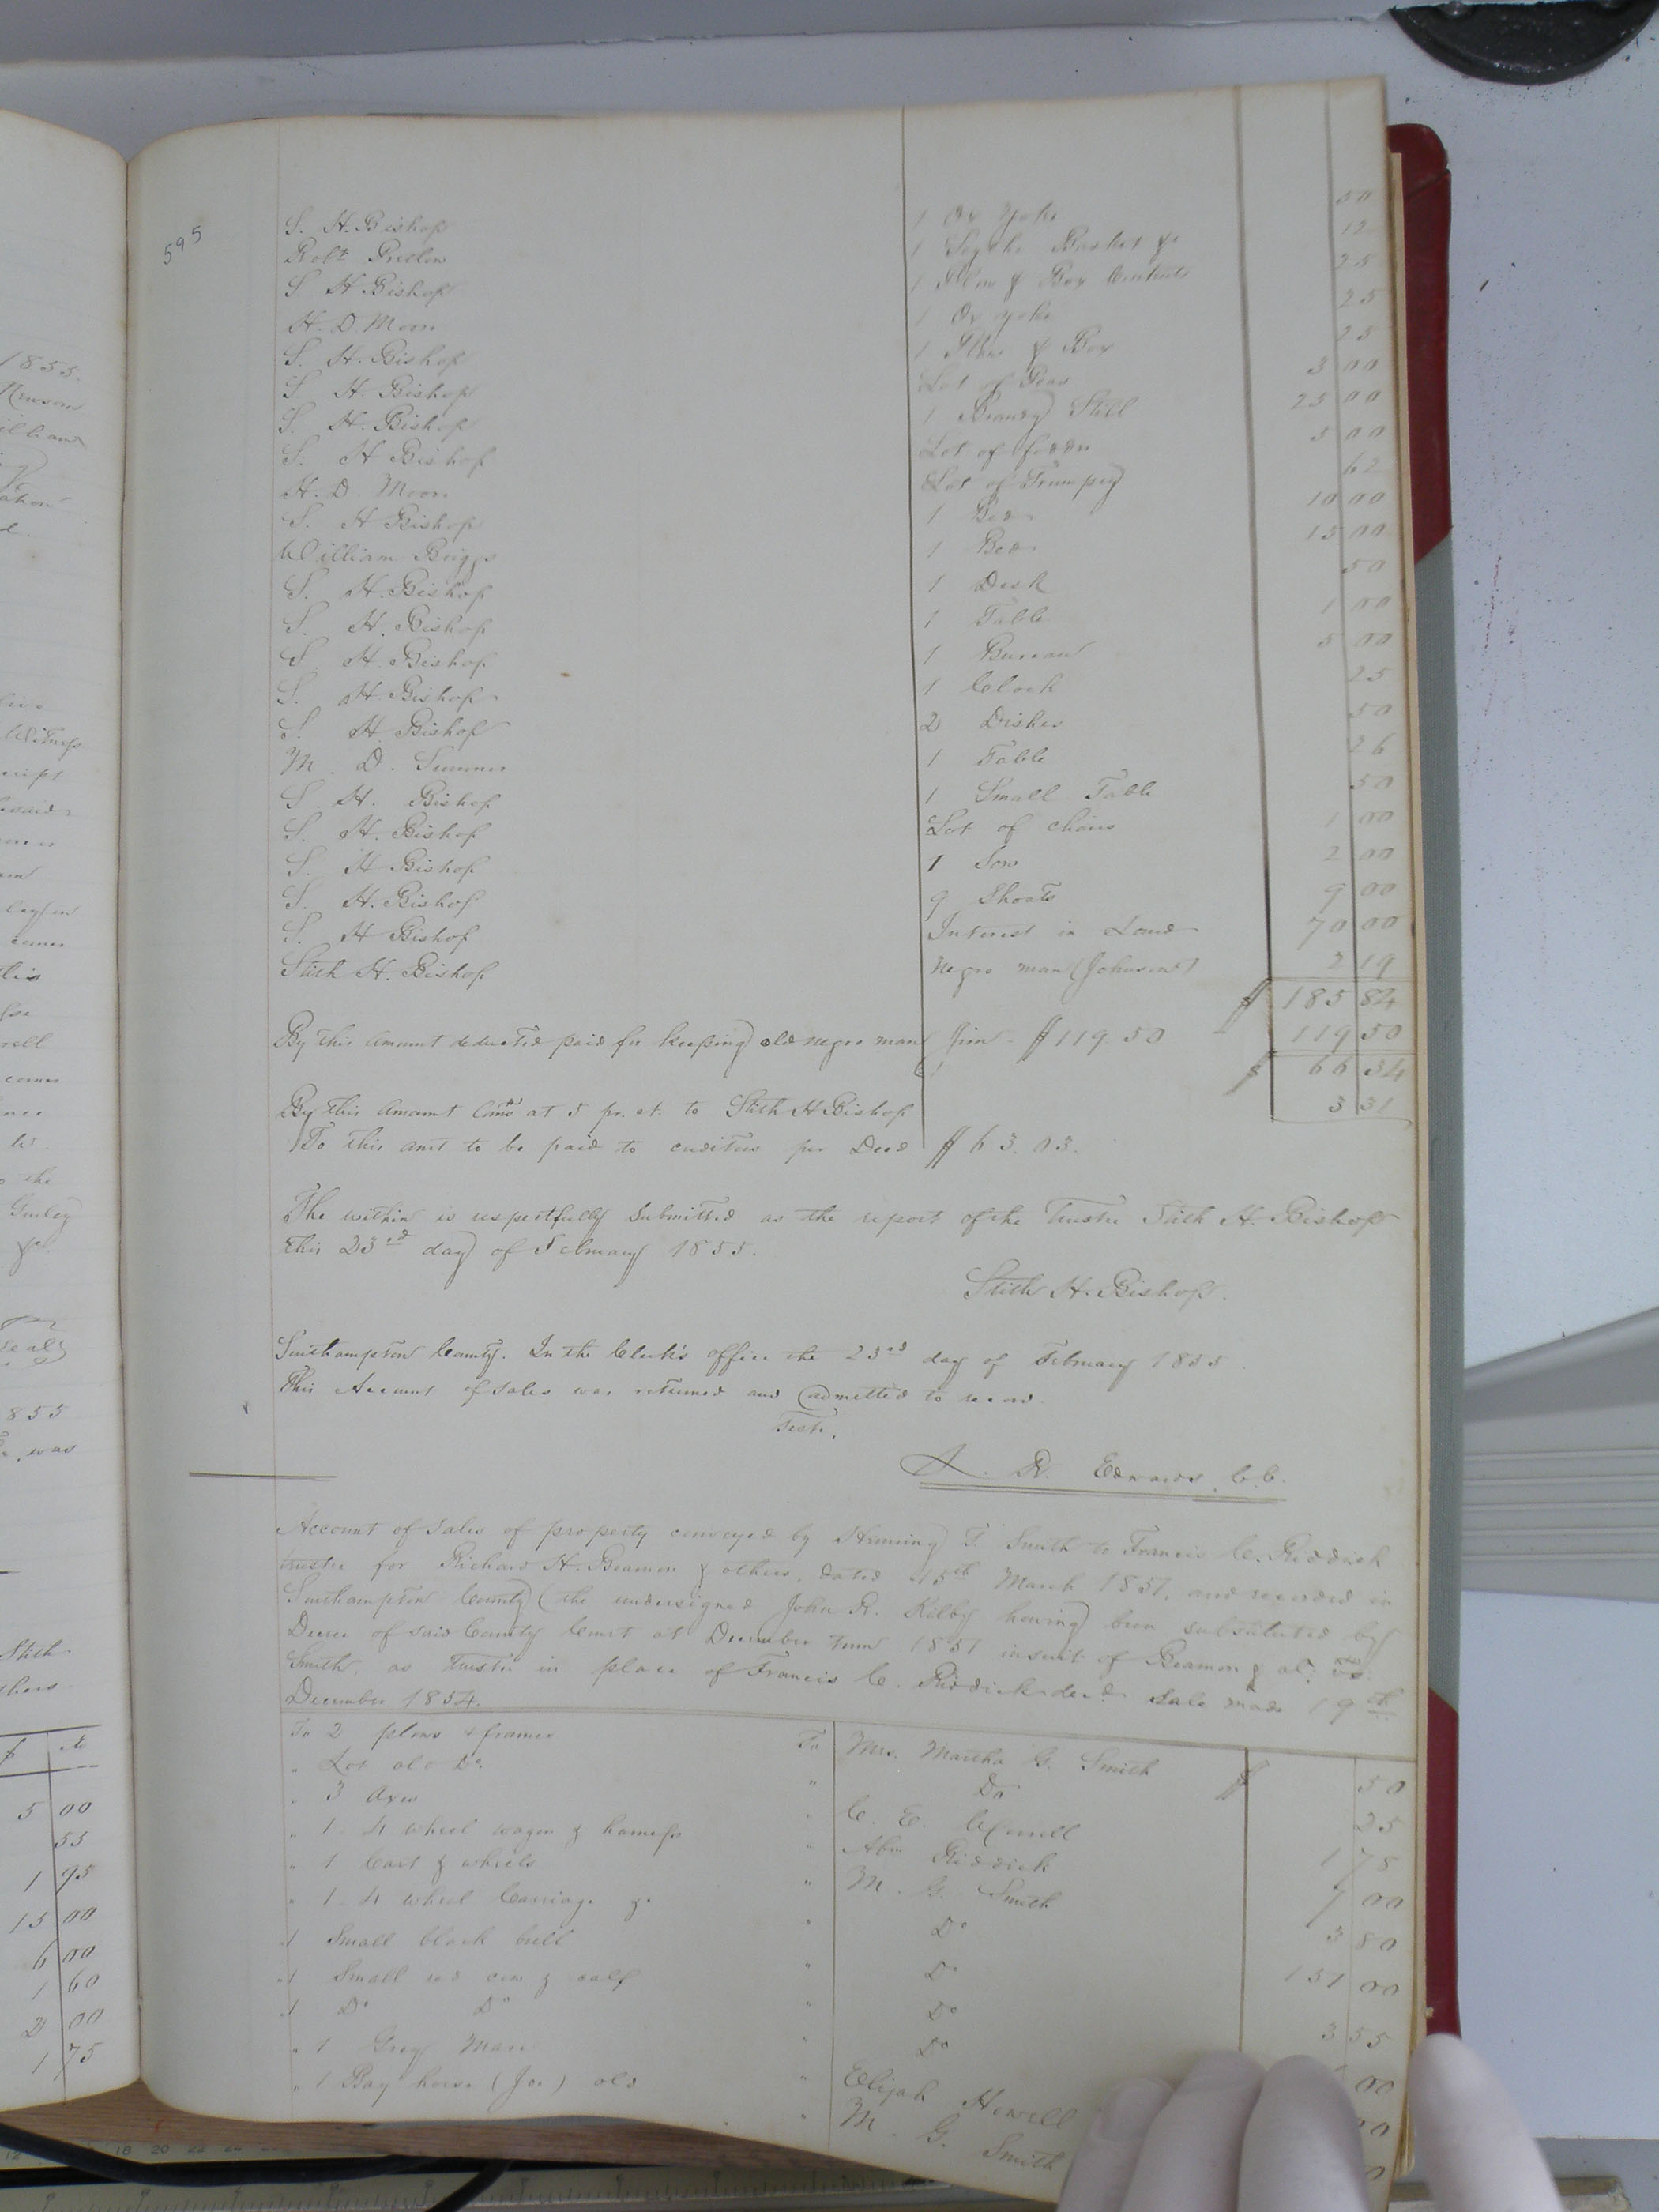 595
S. H. Bishop 1 Ox Yoke 50
Robt. Pretlow 1 Scythe Basket &c 12
S H Bishop 1 Plow & Box Contents 25
H. D. Moore 1 Ox yoke 25
S. H. Bishop 1 Plow & Box 25
S. H. Bishop Lot of Peas 3 00
S. H. Bishop 1 Brandy Still 25 00
S. H Bishop Lot of fodder 5 00
H. D. Moore Lot of Trumpery 62
S. H Bishop 1 Bed 10 00
William Briggs 1 Bed 15 00
S. H. Bishop 1 Desk 50
S. H. Bishop 1 Table 1 00
S. H. Bishop 1 Bureau 5 00
S. H. Bishop 1 Clock 25
S. H. Bishop 2 Dishes 50
M. D. Sumner 1 Table 26
S. H. Bishop 1 Small Table 50
S. H. Bishop Lot of chairs 1 00
S. H Bishop 1 Sow 2 00
S. H. Bishop 9 Shoats 9 00
S. H Bishop Interest in Land 70 00
Stith H. Bishop Negro man (Johnson) 2 19
$ 185 84
By this amount deducted paid for keeping old negro man Jim - $119.50 119 50
$ 66 34
By this amount Coms at 5 pr. ct. to Stith H Bishop 3 31
To this amt to be paid to creditors per Deed $63.03.
The within is respectfully submitted as the report of the Trustee Stith H. Bishop
this 23rd day of February 1855.
Stith H. Bishop.
Southampton County. In the Clerk's office the 23rd day of February 1855.
This Account of sales was returned and admitted to record.
Teste,
L. R. Edwards, C.C.
Account of sales of property conveyed by T Smith to Francis C. Riddick
trustee for Richard H. Beamon & others, dated 15th March 1851, and recorded in
Southampton County (the undersigned John R. Kilby having been substituted by
Decree of said County Court at December term 1851 in suit of Beamon & al; vs.
Smith, as trustee in place of Francis C. Riddick decd. Sale made 19th
December 1854.
To 2 plows & frames To Mrs. Martha G. Smith $ 50
" Lot old Do. " Do 25
" 3 Axes " C. E. 1 75
" 1 - 4 wheel wagon & harness " Abm Riddick 7 00
" 1 Cart & wheels " M. G. Smith 3 80
" 1 - 4 wheel Carriage &c " Do 151 00
" 1 Small black bull " Do 3 55
" 1 Small red cow & calf " Do 00
" 1 Do Do " Do
" 1 Grey Mare " Elijah Howell
" 1 Bay horse (Joe) old " M. G. Smith
1855.
Newsom
Witness
said
corner
corner
the
Gurley
1855
was
Stith
5 00
55
1 95
15 00
6 00
1 60
2 00
1 75